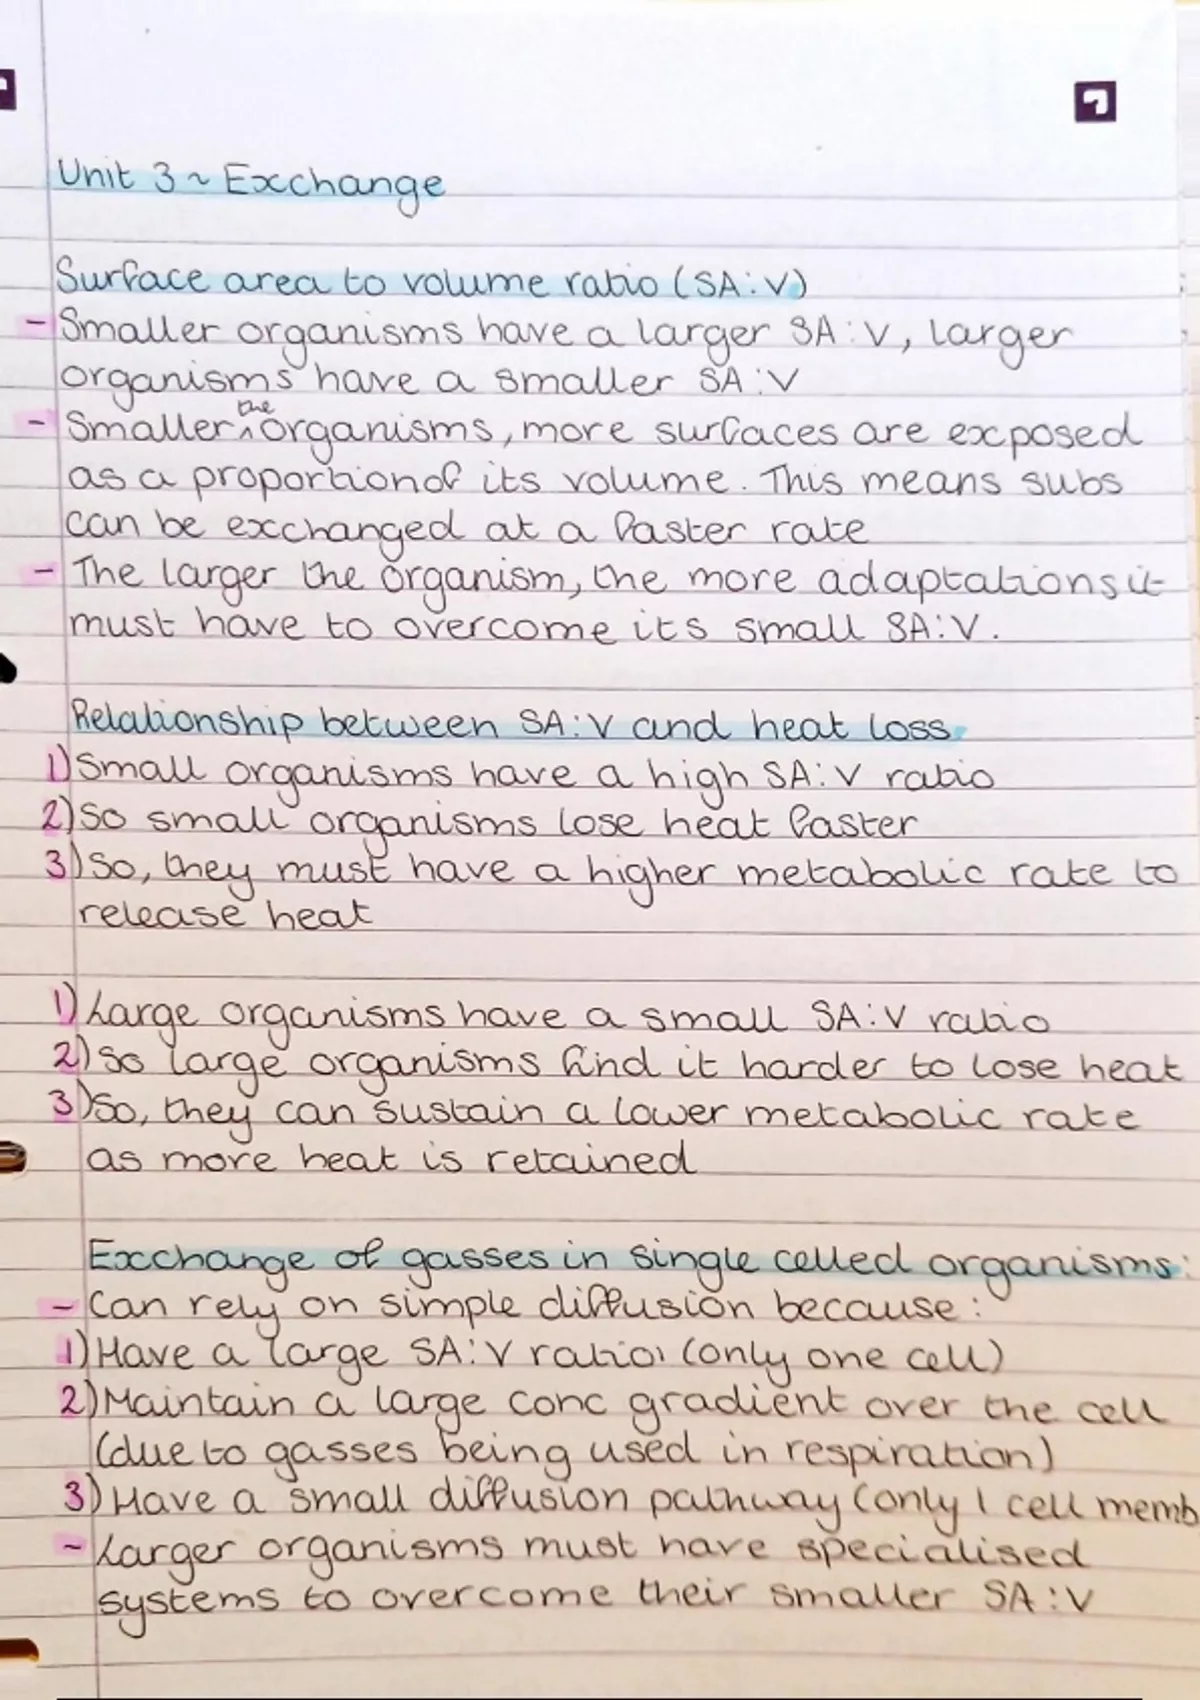 Unit 3 ~ Exchange
Surface area to volume ratio (SA:V)
- Smaller organisms have a larger SA:V, larger
organisms have a smaller SA:V
- Smaller the organisms, more surfaces are exposed
as a proportion of its volume. This means subs
can be exchanged at a faster rate
- The larger the organism, the more adaptations it
must have to overcome its small SA:V.
Relationship between SA:V and heat loss
1) Small organisms have a high SA:V ratio
2) So small organisms lose heat faster
3) So, they must have a higher metabolic rate to
release heat
1) Large organisms have a small SA:V ratio
2) So large organisms find it harder to lose heat
3) So, they can sustain a lower metabolic rate
as more heat is retained
Exchange of gasses in single celled organisms:
- Can rely on simple diffusion because:
1) Have a large SA:V ratio (only one cell)
2) Maintain a large conc gradient over the cell
(due to gasses being used in respiration)
3) Have a small diffusion pathway (only 1 cell memb
- Larger organisms must have specialised
systems to overcome their smaller SA:V